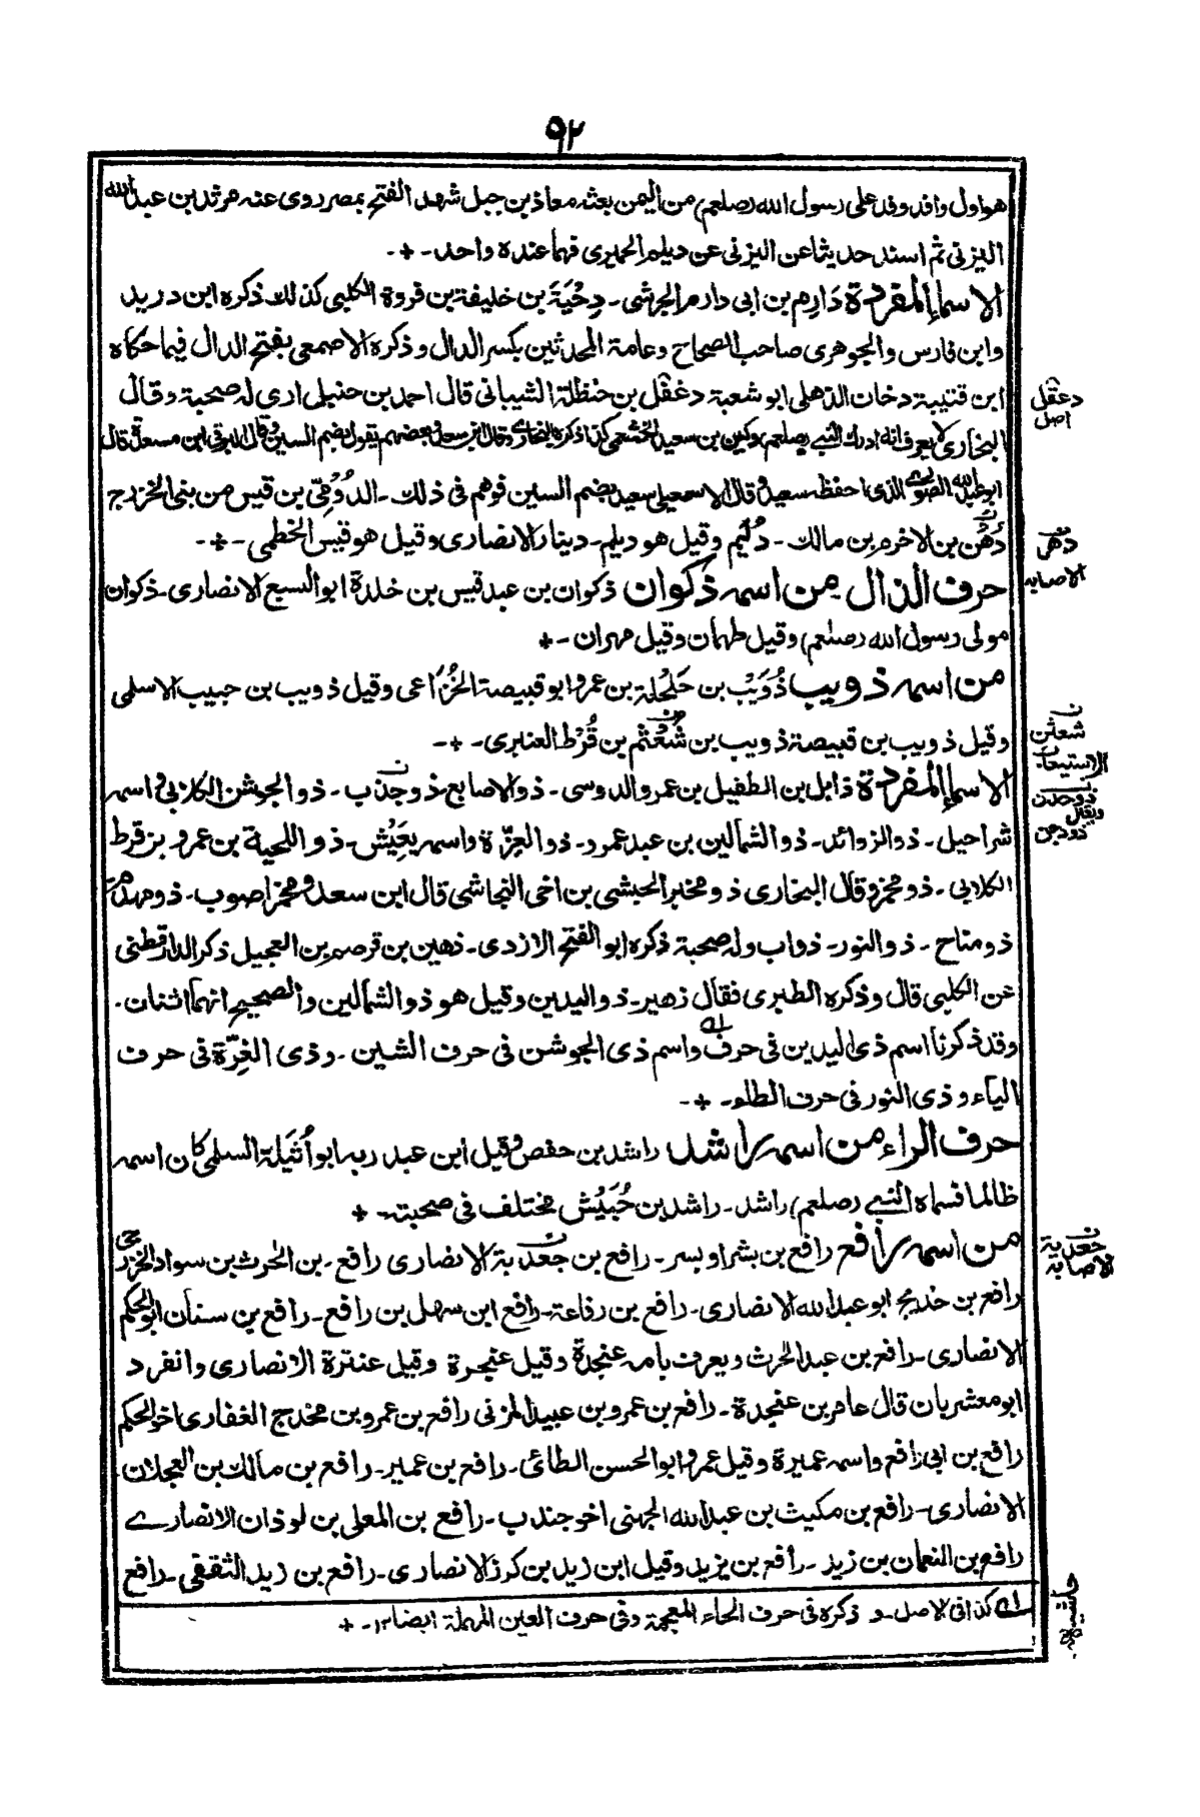 ٩٢
هو اول وافد وفد على رسول الله (صلعم) من اليمن بعثه معاذ بن جبل شهد الفتح بمصر روى عنه مرثد بن عبد الله
اليزني ثم اسند حديثا عن اليزني عن ديلم الحميري فهما عنده واحد-+-
الاسماء المفردة دَارِم بن ابى دارم الجرشي- دِحْيَة بن خليفة بن فروة الكلبي كذلك ذكره ابن دريد
وابن فارس والجوهرى صاحب الصحاح وعامة المحدثين بكسر الدال وذكره الاصمعى بفتح الدال فيما حكاه
ابن قتيبة دخان الذهلى ابو شعبة دغفل بن حنظلة الشيبانى قال احمد بن حنبل ارى له صحبة وقال
البخارى لا يعرف انه ادرك النبي (صلعم) وكين بن سعيد الخثعمى كذا ذكره البخارى وقال ابن سعد وبعضهم يقول بضم السين وقال البرقى ابن مسعدة قال
ابو عبد الله الصورى الذى احفظه سعيد وقال الاسمعيلى سعيد بضم السين فوهم فى ذلك- الدُوْمِىّ بن قيس من بنى الخزرج
دَهْن بن الاخرم بن مالك- دُلَيم وقيل هو ديلم- دينار الانصارى وقيل هو قيس الخطمى-+-
حرف الذال من اسمه ذكوان ذكوان بن عبد قيس بن خلدة ابو السبع الانصارى- ذكوان
مولى رسول الله (صلعم) وقيل طهمان وقيل مهران-+
من اسمه ذويب ذُوَيْب بن حَلْحَلة بن عمرو ابو قبيصة الخُزَاعى وقيل ذويب بن حبيب الاسلمى
وقيل ذويب بن قبيصة ذويب بن شُعْثم بن قُرْط العنبرى-+-
الاسماء المفردة ذابل بن الطفيل بن عمرو الدوسى- ذو الاصابع- ذو جذب- ذو الجوشن الكلابى واسمه
شراحيل- ذو الزوائد- ذو الشمالين بن عبد عمرو- ذو الغِرّة واسمه يَعِيْش- ذو اللحية بن عمرو بن قرط
الكلابى- ذو مخمر وقال البخارى ذو مخبر الحبشى بن اخى النجاشى قال ابن سعد ومخمر اصوب- ذو مهدم
ذو مناح- ذو النور- ذواب وله صحبة ذكره ابو الفتح الازدى- ذهين بن قرصم بن العجيل ذكر الدارقطنى
عن الكلبى قال وذكره الطبرى فقال زهير- ذو اليدين وقيل هو ذو الشمالين والصحيح انهما اثنان-
وقد ذكرنا اسم ذى اليدين فى حرف واسم ذى الجوشن فى حرف الشين- وذى الغِرّة فى حرف
الياء وذى النور فى حرف الطاء-+-
حرف الراء من اسمه راشد راشد بن حفص وقيل ابن عبد ربه ابو اُثَيلة السلمى كان اسمه
ظالما فسماه النبي (صلعم) راشد- راشد بن حُبَيْش مختلف فى صحبته-+
من اسمه رافع رافع بن بشر او بسر- رافع بن جعدبة الانصارى رافع- بن الحرث بن سواد الخزرجى
رافع بن خديج ابو عبد الله الانصارى- رافع بن رفاعة- رافع ابن سهل بن رافع- رافع بن سنان ابو الحكم
الانصارى- رافع بن عبد الحرث ويعرف بامه عنجدة وقيل عنجرة وقيل عنترة الانصارى وانفرد
ابو معشر بان قال عامر بن عنجدة- رافع بن عمرو بن عبيد المزنى رافع بن عمرو بن مخدج الغفارى اخو الحكم
رافع بن ابى رافع واسمه عميرة وقيل عمرو ابو الحسن الطائى- رافع بن عمير- رافع بن مالك بن العجلان
الانصارى- رافع بن مكيث بن عبد الله الجهنى اخو جندب- رافع بن المعلى بن لوذان الانصارى
رافع بن النعمان بن زيد- رافع بن يزيد وقيل ابن زيد بن كرز الانصارى- رافع بن زيد الثقفى- رافع
كذا فى الاصل- و ذكره فى حرف الخاء المعجمة وفى حرف العين المهملة ايضا ١٢-+
دغفل
اصل
دهر
الاصابه
ن
شعثن
الاستيعاب
ذو جدن
ويقال
ذو دجن
ن
جعدبة
الاصابه